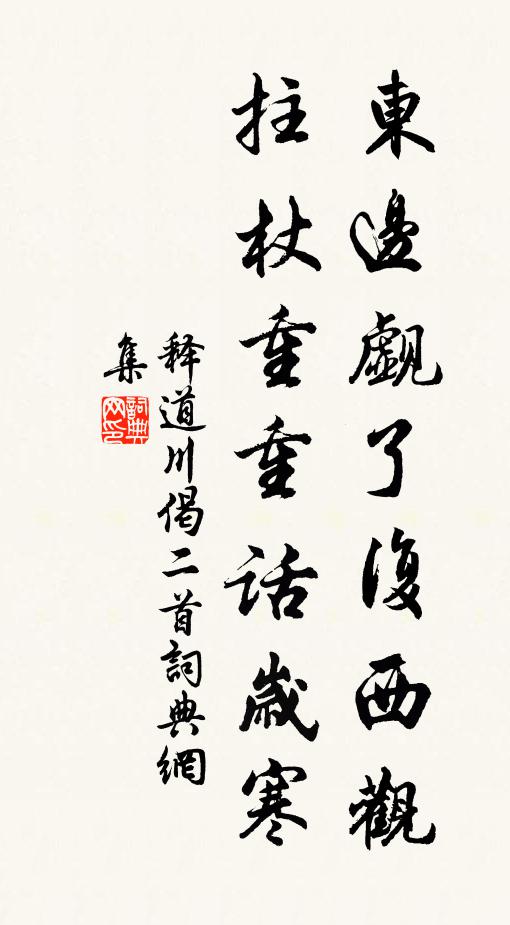 東邊覷了復西觀
拄杖重重話歲寒
释道川偈二首詞典網
集
詞典
网印